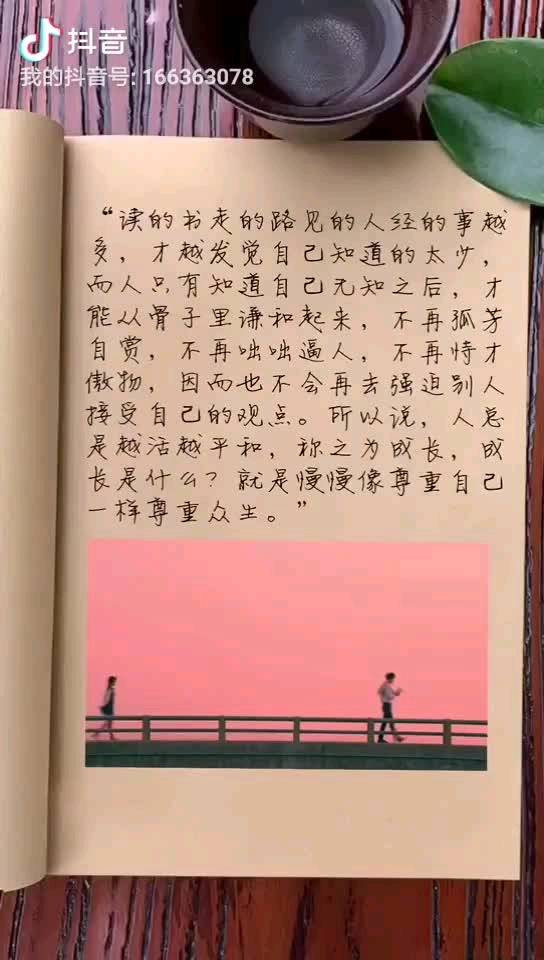 抖音
我的抖音号: 166363078
“读的书走的路见的人经的事越
多，才越发觉自己知道的太少，
而人只有知道自己无知之后，才
能从骨子里谦和起来，不再孤芳
自赏，不再咄咄逼人，不再恃才
傲物，因而也不会再去强迫别人
接受自己的观点。所以说，人总
是越活越平和，称之为成长，成
长是什么？就是慢慢像尊重自己
一样尊重众生。”